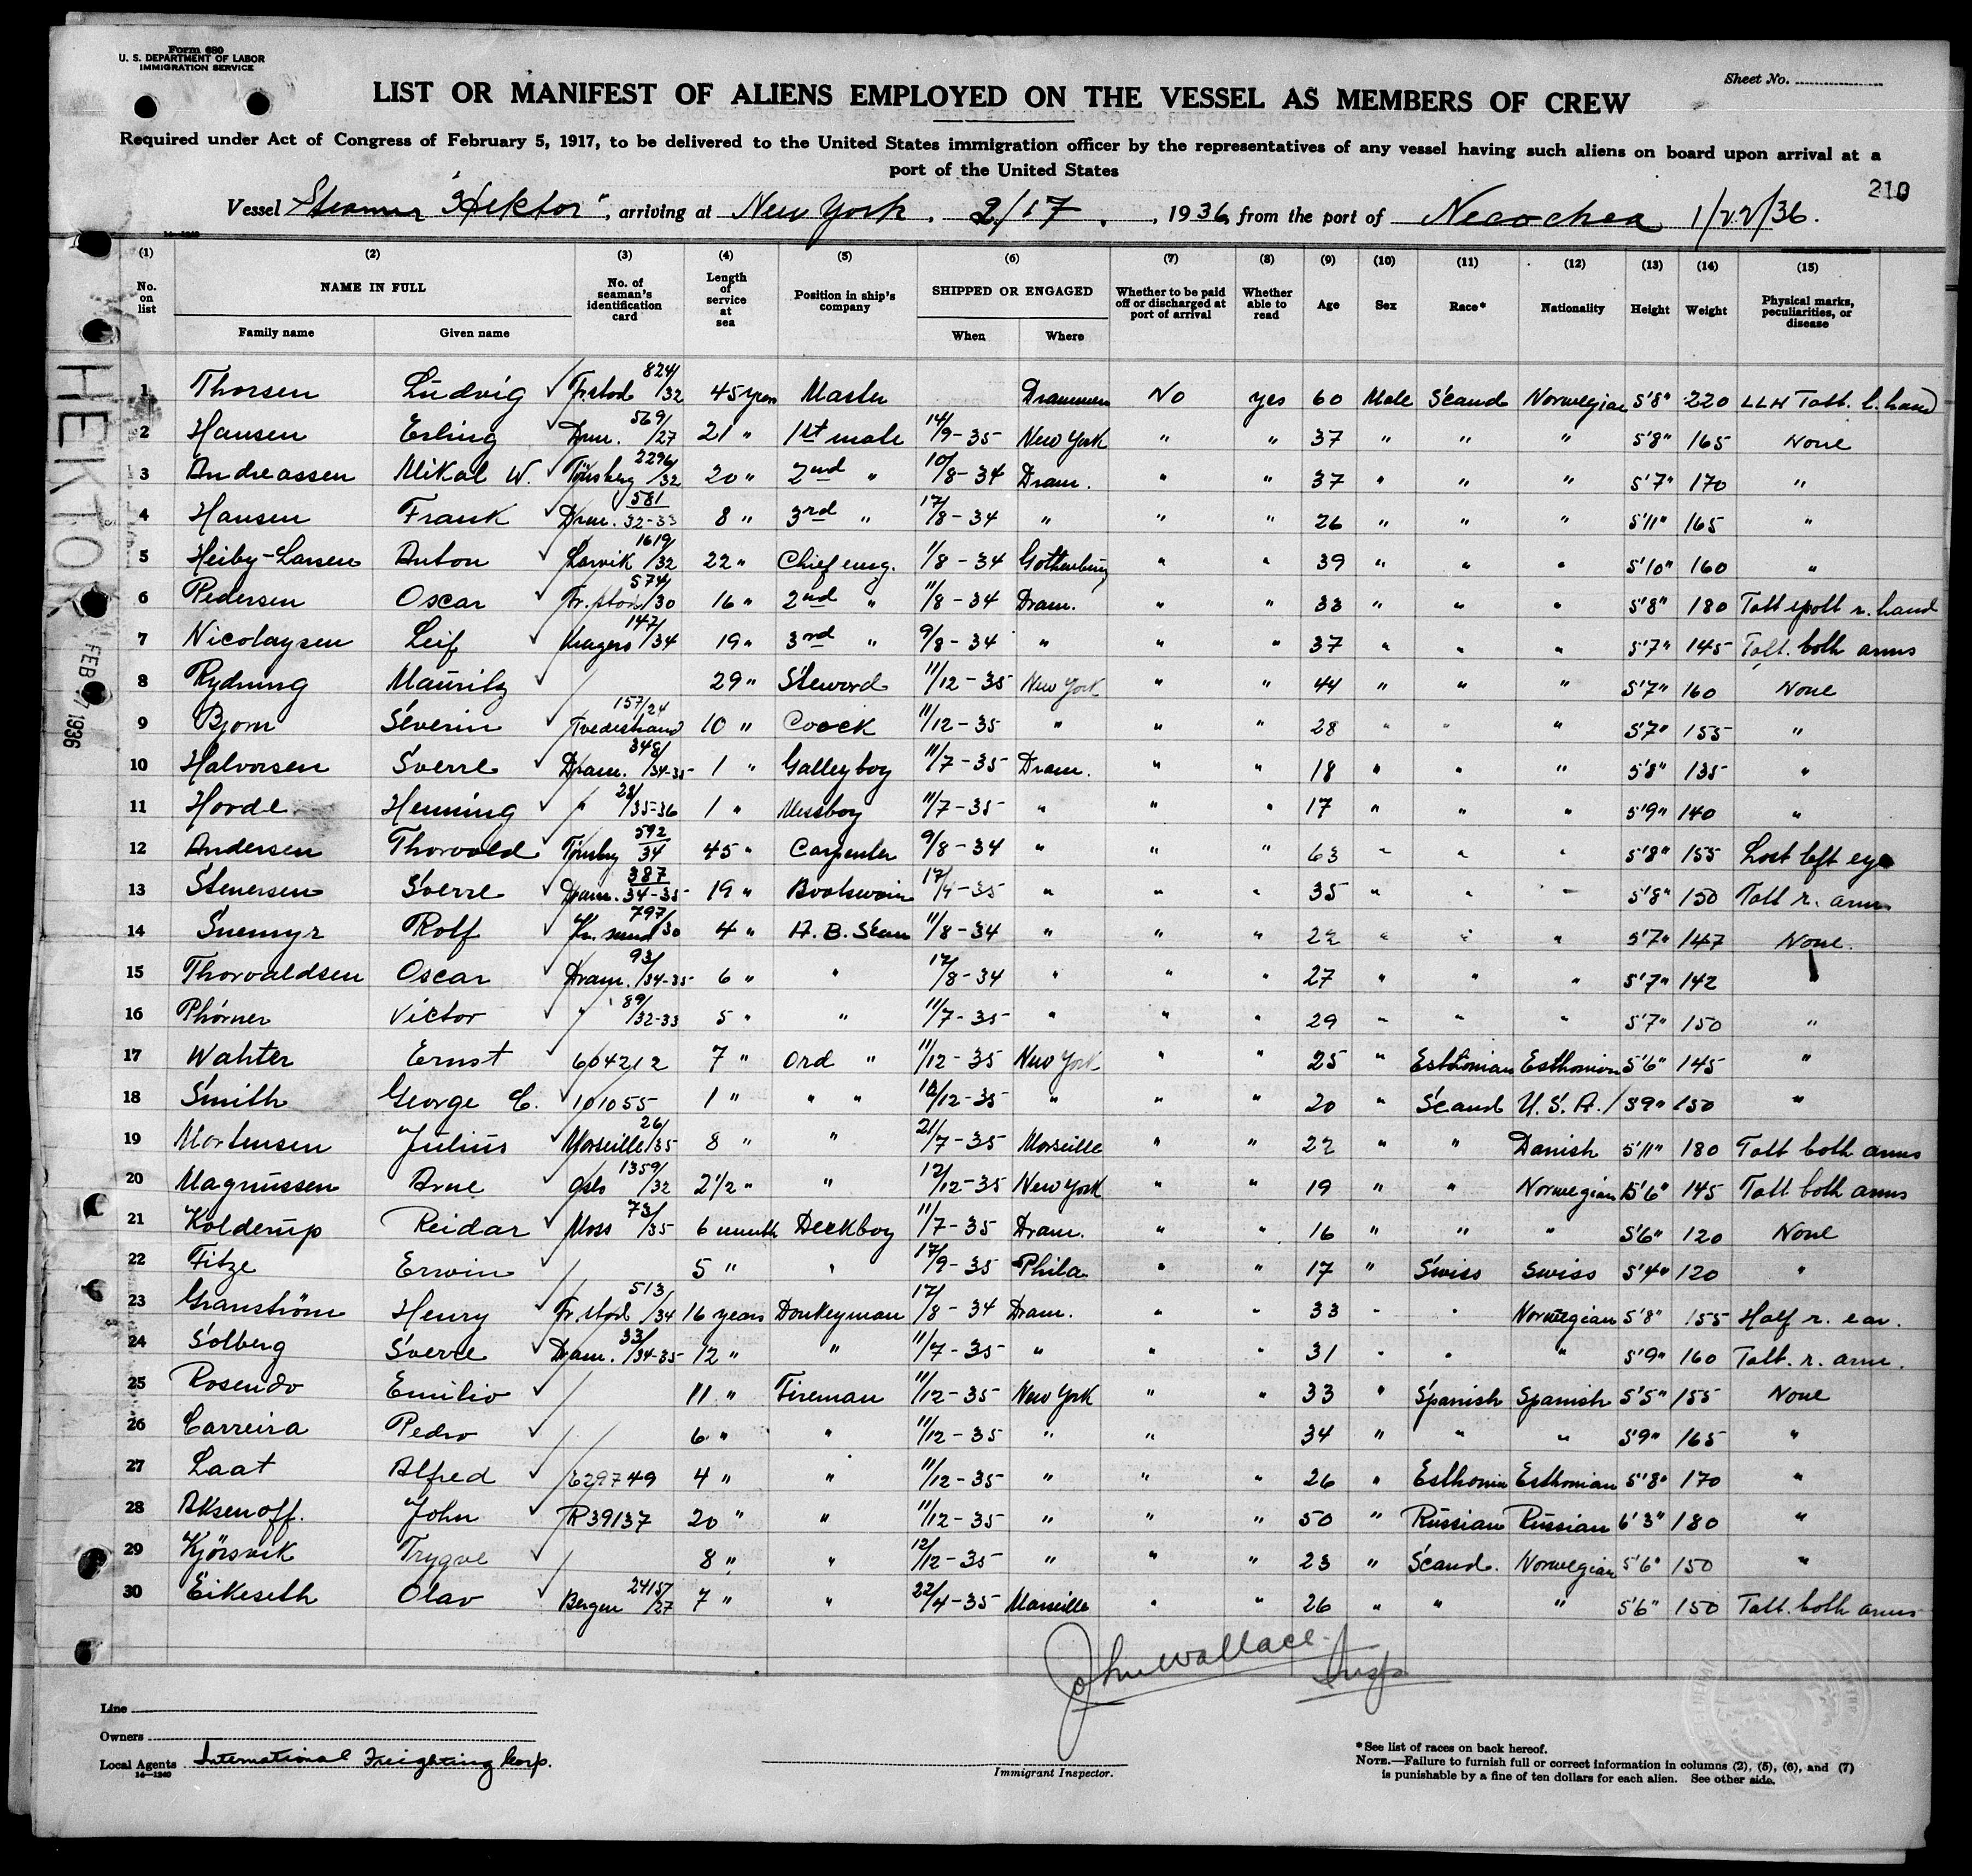 Form 680
U. S. DEPARTMENT OF LABOR
IMMIGRATION SERVICE
Sheet No.
LIST OR MANIFEST OF ALIENS EMPLOYED ON THE VESSEL AS MEMBERS OF CREW
Required under Act of Congress of February 5, 1917, to be delivered to the United States immigration officer by the representatives of any vessel having such aliens on board upon arrival at a
port of the United States
210
Vessel Steamer "Hektor", arriving at New York, 2/17, 1936, from the port of Necochea 1/22/36.
14-1240
(1) (2) (3) (4) (5) (6) (7) (8) (9) (10) (11) (12) (13) (14) (15)
No. on list NAME IN FULL Family name Given name No. of seaman's identification card Length of service at sea Position in ship's company SHIPPED OR ENGAGED When Where Whether to be paid off or discharged at port of arrival Whether able to read Age Sex Race* Nationality Height Weight Physical marks, peculiarities, or disease
1 Thorsen Ludvig Fr.stad 824/32 45 years Master Drammen No yes 60 Male Scand Norwegian 5'8" 220 LLH Tatt. l. hand
2 Hansen Erling Dram. 569/27 21 " 1st mate 14/9-35 New York " " 37 " " " 5'8" 165 None
3 Andreassen Mikal W. Tönsberg 2296/32 20 " 2nd " 10/8-34 Dram. " " 37 " " " 5'7" 170 "
4 Hansen Frank Dram. 581/32-33 8 " 3rd " 17/8-34 " " " 26 " " " 5'11" 165 "
5 Heiby-Larsen Anton Larvik 1619/32 22 " Chief eng. 1/8-34 Gothenburg " " 39 " " " 5'10" 160 "
6 Pedersen Oscar Fr.stad 574/30 16 " 2nd " 11/8-34 Dram. " " 33 " " " 5'8" 180 Tatt spott r. hand
7 Nicolaysen Leif 147/34 19 " 3rd " 9/8-34 " " " 37 " " " 5'7" 145 Tatt. both arms
8 Rydning Mauritz 29 " Steward 11/12-35 New York " " 44 " " " 5'7" 160 None
9 Bjorn Severin Tvedestrand 157/24 10 " Coock 11/12-35 " " " 28 " " " 5'7" 155 "
10 Halvorsen Sverre Dram. 348/34-35 1 " Galleyboy 11/7-35 Dram. " " 18 " " " 5'8" 135 "
11 Hovde Henning " 28/35-36 1 " Messboy 11/7-35 " " " 17 " " " 5'9" 140 "
12 Andersen Thorvald Tönsby 592/34 45 " Carpenter 9/8-34 " " " 63 " " " 5'8" 155 Lost left eye
13 Stenersen Sverre Dram. 387/34-35 19 " Boatswain 17/4-35 " " " 35 " " " 5'8" 150 Tatt r. arm
14 Snemyr Rolf Kr. sund 797/30 4 " A. B. Seam 11/8-34 " " " 22 " " " 5'7" 147 None.
15 Thorvaldsen Oscar Dram. 93/34-35 6 " " 17/8-34 " " " 27 " " " 5'7" 142
16 Phörner Victor " 89/32-33 5 " " 11/7-35 " " " 29 " " " 5'7" 150 "
17 Wahter Ernst 604212 7 " Ord " 11/12-35 New York " " 25 " Esthonian Esthonian 5'6" 145 "
18 Smith George C. 101055 1 " " " 12/12-35 " " " 20 " Scand U.S.A. 5'9" 150 "
19 Mortensen Julius Marseille 26/35 8 " " 21/7-35 Marseille " " 22 " " Danish 5'11" 180 Tatt both arms
20 Magnussen Arne Oslo 1359/32 2 1/2 " " 12/12-35 New York " " 19 " " Norwegian 5'6" 145 Tatt both arms
21 Kolderup Reidar Moss 73/35 6 month Deckboy 11/7-35 Dram. " " 16 " " " 5'6" 120 None
22 Fitze Erwin 5 " " 17/9-35 Phila " " 17 " Swiss Swiss 5'4" 120 "
23 Granström Henry Fr.stad 513/34 16 years Donkeyman 17/8-34 Dram. " " 33 " " Norwegian 5'8" 155 Half r. ear.
24 Solberg Sverre Dram. 33/34-35 12 " " 11/7-35 " " " 31 " " " 5'9" 160 Tatt. r. arm.
25 Rosendo Emilio 11 " Fireman 11/12-35 New York " " 33 " Spanish Spanish 5'5" 155 None
26 Carreira Pedro 6 " " 11/12-35 " " 34 " " " 5'9" 165 "
27 Laat Alfred 629749 4 " " 11/12-35 " " " 26 " Esthonia Esthonian 5'8" 170 "
28 Aksenoff. John R39137 20 " " 11/12-35 " " " 50 " Russian Russian 6'3" 180 "
29 Kjörsvik Trygve 8 " " 12/12-35 " " " 23 " Scand. Norwegian 5'6" 150 "
30 Eikeseth Olav Bergen 24157/27 7 " " 22/4-35 Marseille " " 26 " " " 5'6" 150 Tatt. both arms
HEKTOR FEB 17 1936
John Wallace
Insp
Line
Owners
Local Agents International Freighting Corp.
14-1240
Immigrant Inspector.
*See list of races on back hereof.
NOTE.—Failure to furnish full or correct information in columns (2), (5), (6), and (7)
is punishable by a fine of ten dollars for each alien. See other side.